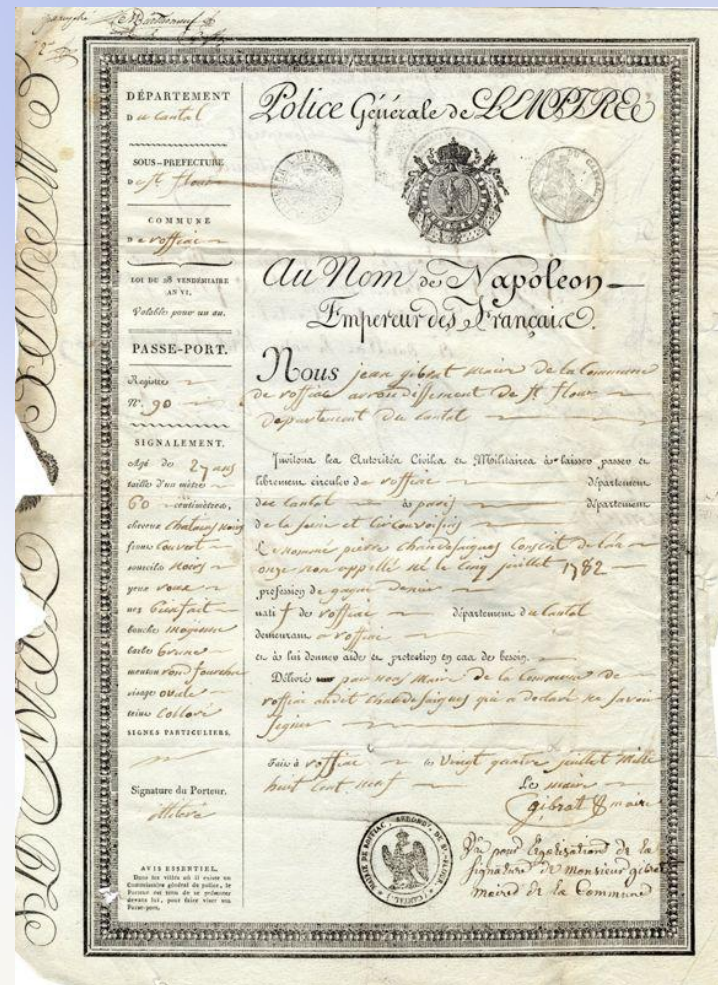 DÉPARTEMENT
Du Cantal
SOUS-PREFECTURE
De St flour
COMMUNE
De roffiac
LOI DU 28 VENDÉMIAIRE
AN VI.
Valable pour un an.
PASSE-PORT.
Registre
N°. 90
SIGNALEMENT.
Agé de 27 ans
taille d'un mètre
60 centimètres,
cheveux Chatains noirs
front Couvert
sourcils noirs
yeux roux
nez bienfait
bouche moyenne
barbe brune
menton rond fourchu
visage ovale
teint Colloré
SIGNES PARTICULIERS.
Signature du Porteur.
illiteré
AVIS ESSENTIEL.
Dans les villes où il existe un
Commissaire général de police, le
Porteur est tenu de se présenter
devant lui, pour faire viser son
Passe-port.
Police Générale de L'EMPIRE
Au Nom de Napoleon
Empereur des Français.
Nous jean gibrat maire de la Commune
de roffiac arrondissement de St flour
departement du Cantal
Invitons les Autorités Civiles et Militaires à laisser passer et
librement circuler de roffiac département
du Cantal à paris département
de la Seine et Circonvoisins
Le nommé pierre Chaudesaigues Conscrit de l'an
onze non appellé né le Cinq juillet 1782
profession de gagne denier
natif de roffiac département du Cantal
demeurant a roffiac
et à lui donner aide et protection en cas de besoin.
Délivré par nous Maire de la Commune de
roffiac audit Chaudesaigues qui a declaré ne Savoir
Signer
Fait à roffiac le Vingt quatre juillet mille
huit Cent neuf Le maire
gibrat maire
MAIRIE DE ROFFIAC, ARROND. DE ST. FLOUR. (CANTAL.)
Vu pour legalisation de la
signature de monsieur gibrat
maire de la Commune